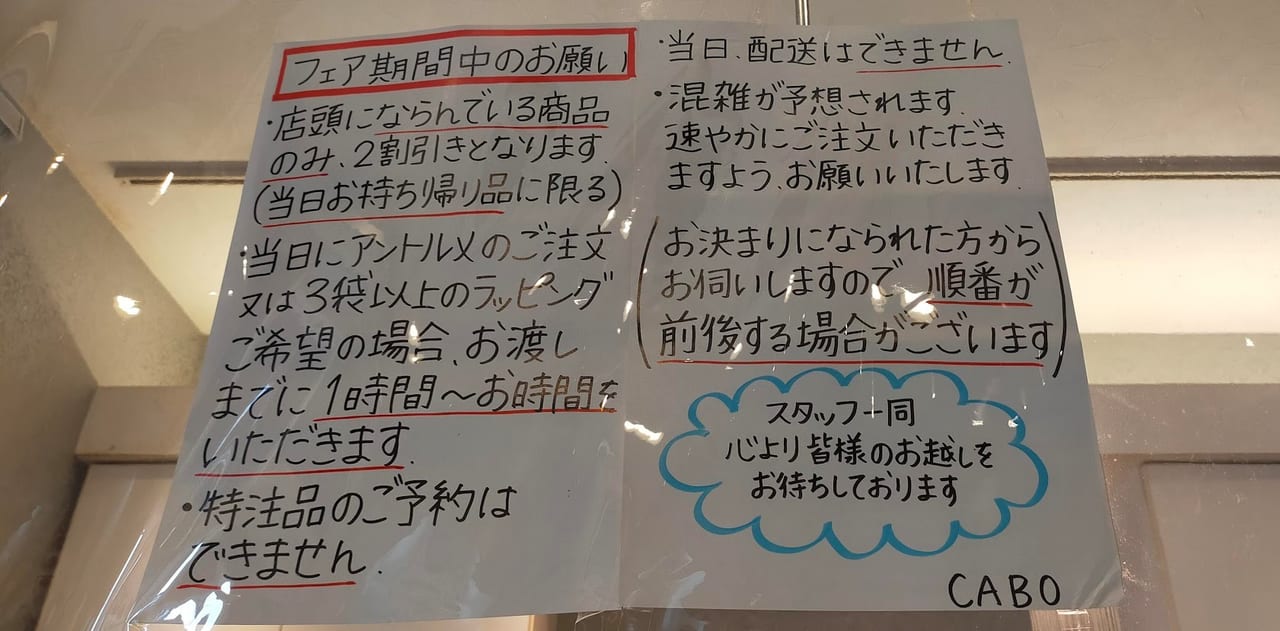 フェア期間中のお願い
・店頭にならんでいる商品
のみ、2割引きとなります。
(当日お持ち帰り品に限る)
・当日にアントルメのご注文
又は3袋以上のラッピング
ご希望の場合、お渡し
までに1時間〜お時間を
いただきます。
・特注品のご予約は
できません。
・当日、配送はできません。
・混雑が予想されます。
速やかにご注文いただき
ますよう、お願いいたします。
(お決まりになられた方から
お伺いしますので、順番が
前後する場合がございます)
スタッフ一同
心より皆様のお越しを
お待ちしております
CABO